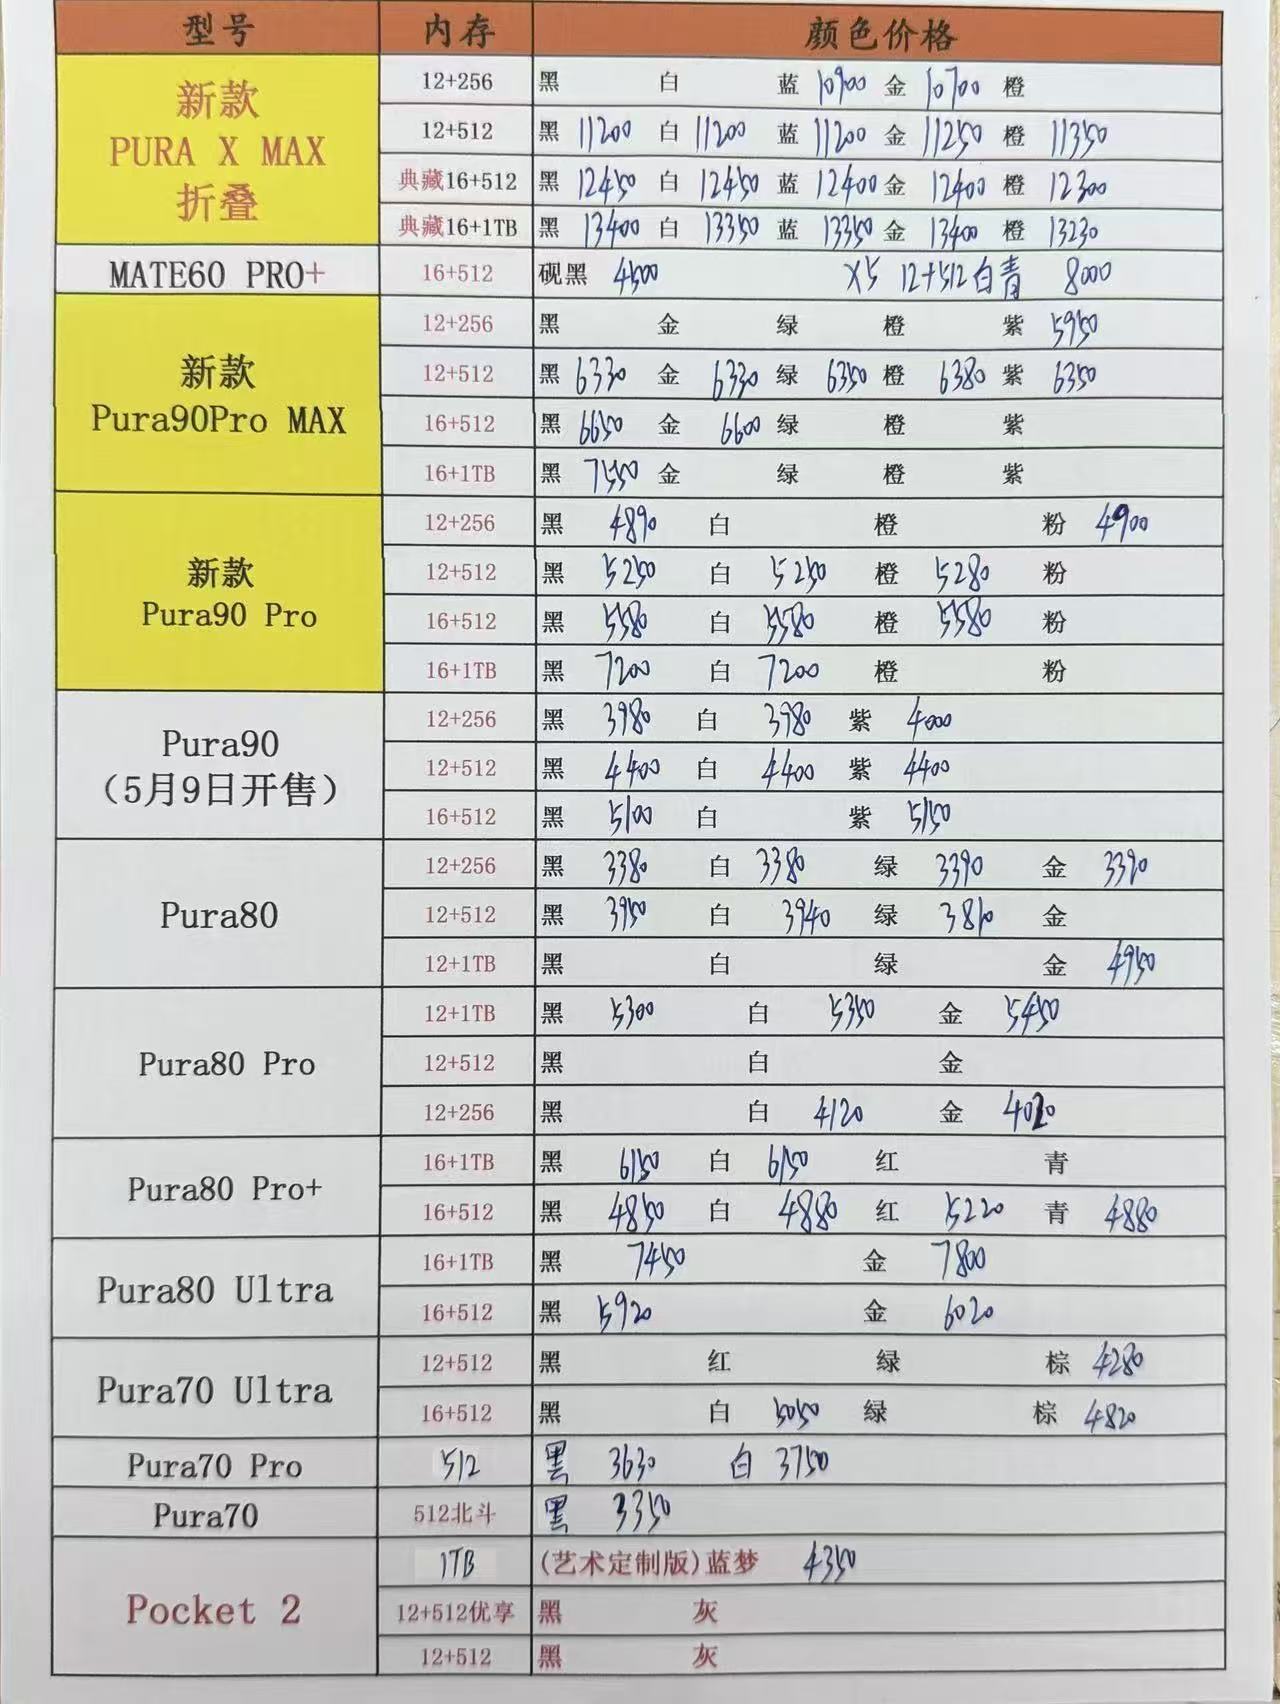 型号 内存 颜色价格
新款
PURA X MAX
折叠
12+256 黑 白 蓝 10900 金 10700 橙
12+512 黑 11200 白 11200 蓝 11200 金 11250 橙 11350
典藏16+512 黑 12450 白 12450 蓝 12400 金 12400 橙 12300
典藏16+1TB 黑 13400 白 13350 蓝 13350 金 13400 橙 13230
MATE60 PRO+ 16+512 砚黑 4500 X5 12+512白青 8000
新款
Pura90Pro MAX
12+256 黑 金 绿 橙 紫 5950
12+512 黑 6330 金 6330 绿 6350 橙 6380 紫 6350
16+512 黑 6650 金 6600 绿 橙 紫
16+1TB 黑 7550 金 绿 橙 紫
新款
Pura90 Pro
12+256 黑 4890 白 橙 粉 4900
12+512 黑 5250 白 5250 橙 5280 粉
16+512 黑 5580 白 5580 橙 5580 粉
16+1TB 黑 7200 白 7200 橙 粉
Pura90
（5月9日开售）
12+256 黑 3980 白 3980 紫 4000
12+512 黑 4400 白 4400 紫 4400
16+512 黑 5100 白 紫 5150
Pura80
12+256 黑 3380 白 3380 绿 3390 金 3390
12+512 黑 3950 白 3940 绿 3810 金
12+1TB 黑 白 绿 金 4950
Pura80 Pro
12+1TB 黑 5300 白 5350 金 5450
12+512 黑 白 金
12+256 黑 白 4120 金 4020
Pura80 Pro+
16+1TB 黑 6150 白 6150 红 青
16+512 黑 4850 白 4880 红 5220 青 4880
Pura80 Ultra
16+1TB 黑 7450 金 7800
16+512 黑 5920 金 6020
Pura70 Ultra
12+512 黑 红 绿 棕 4280
16+512 黑 白 5050 绿 棕 4820
Pura70 Pro 512 黑 3630 白 3750
Pura70 512北斗 黑 3350
Pocket 2
1TB (艺术定制版)蓝梦 4350
12+512优享 黑 灰
12+512 黑 灰